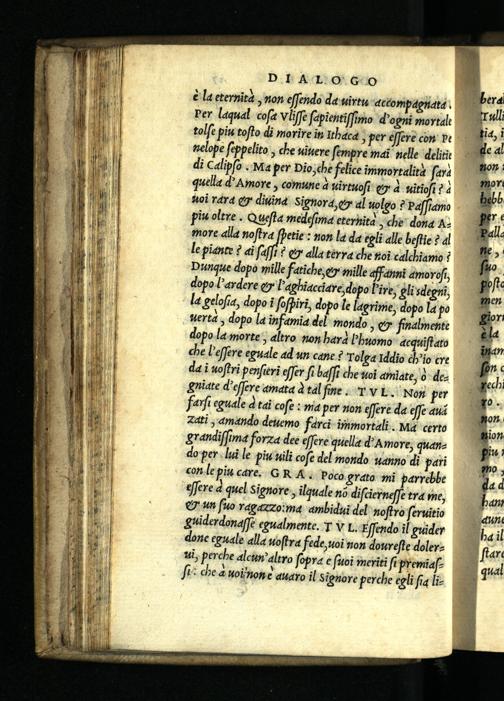 DIALOGO
è la eternità, non essendo da virtu accompagnata.
Per laqual cosa Vlisse sapientissimo d'ogni mortale
tolse piu tosto di morire in Ithaca, per essere con Pe
nelope seppelito, che viuere sempre mai nelle delitie
di Calipso. Ma per Dio, che felice immortalità sarà
quella d'Amore, comune à virtuosi & à vitiosi? à
uoi rara & diuina Signora, & al volgo? Passiamo
piu oltre. Questa medesima eternità, che dona A-
more alla nostra spetie: non la da egli alle bestie? al
le piante? ai sassi? & alla terra che noi calchiamo?
Dunque dopo mille fatiche, & mille affanni amorosi,
dopo l'ardere & l'aghiacciare, dopo l'ire, gli sdegni,
la gelosia, dopo i sospiri, dopo le lagrime, dopo la po
uertà, dopo la infamia del mondo, & finalmente
dopo la morte, altro non harà l'huomo acquistato
che l'essere eguale ad un cane? Tolga Iddio ch'io cre
da i uostri pensieri esser si bassi che uoi amiate, ò de-
gniate d'essere amata à tal fine. TVL. Non per
farsi eguale à tai cose: ma per non essere da esse auā
zati, amando deuemo farci immortali. Ma certo
grandissima forza dee essere quella d'Amore, quan-
do per lui le piu uili cose del mondo uanno di pari
con le piu care. GRA. Poco grato mi parrebbe
essere à quel Signore, ilquale nō discernesse tra me,
& un suo ragazzo: ma ambidui del nostro seruitio
guiderdonasse egualmente. TVL. Essendo il guider
done eguale alla uostra fede, uoi non doureste doler-
ui, perche alcun'altro sopra e suoi meriti si premias-
si: che à uoi non è auaro il Signore perche egli sia li-